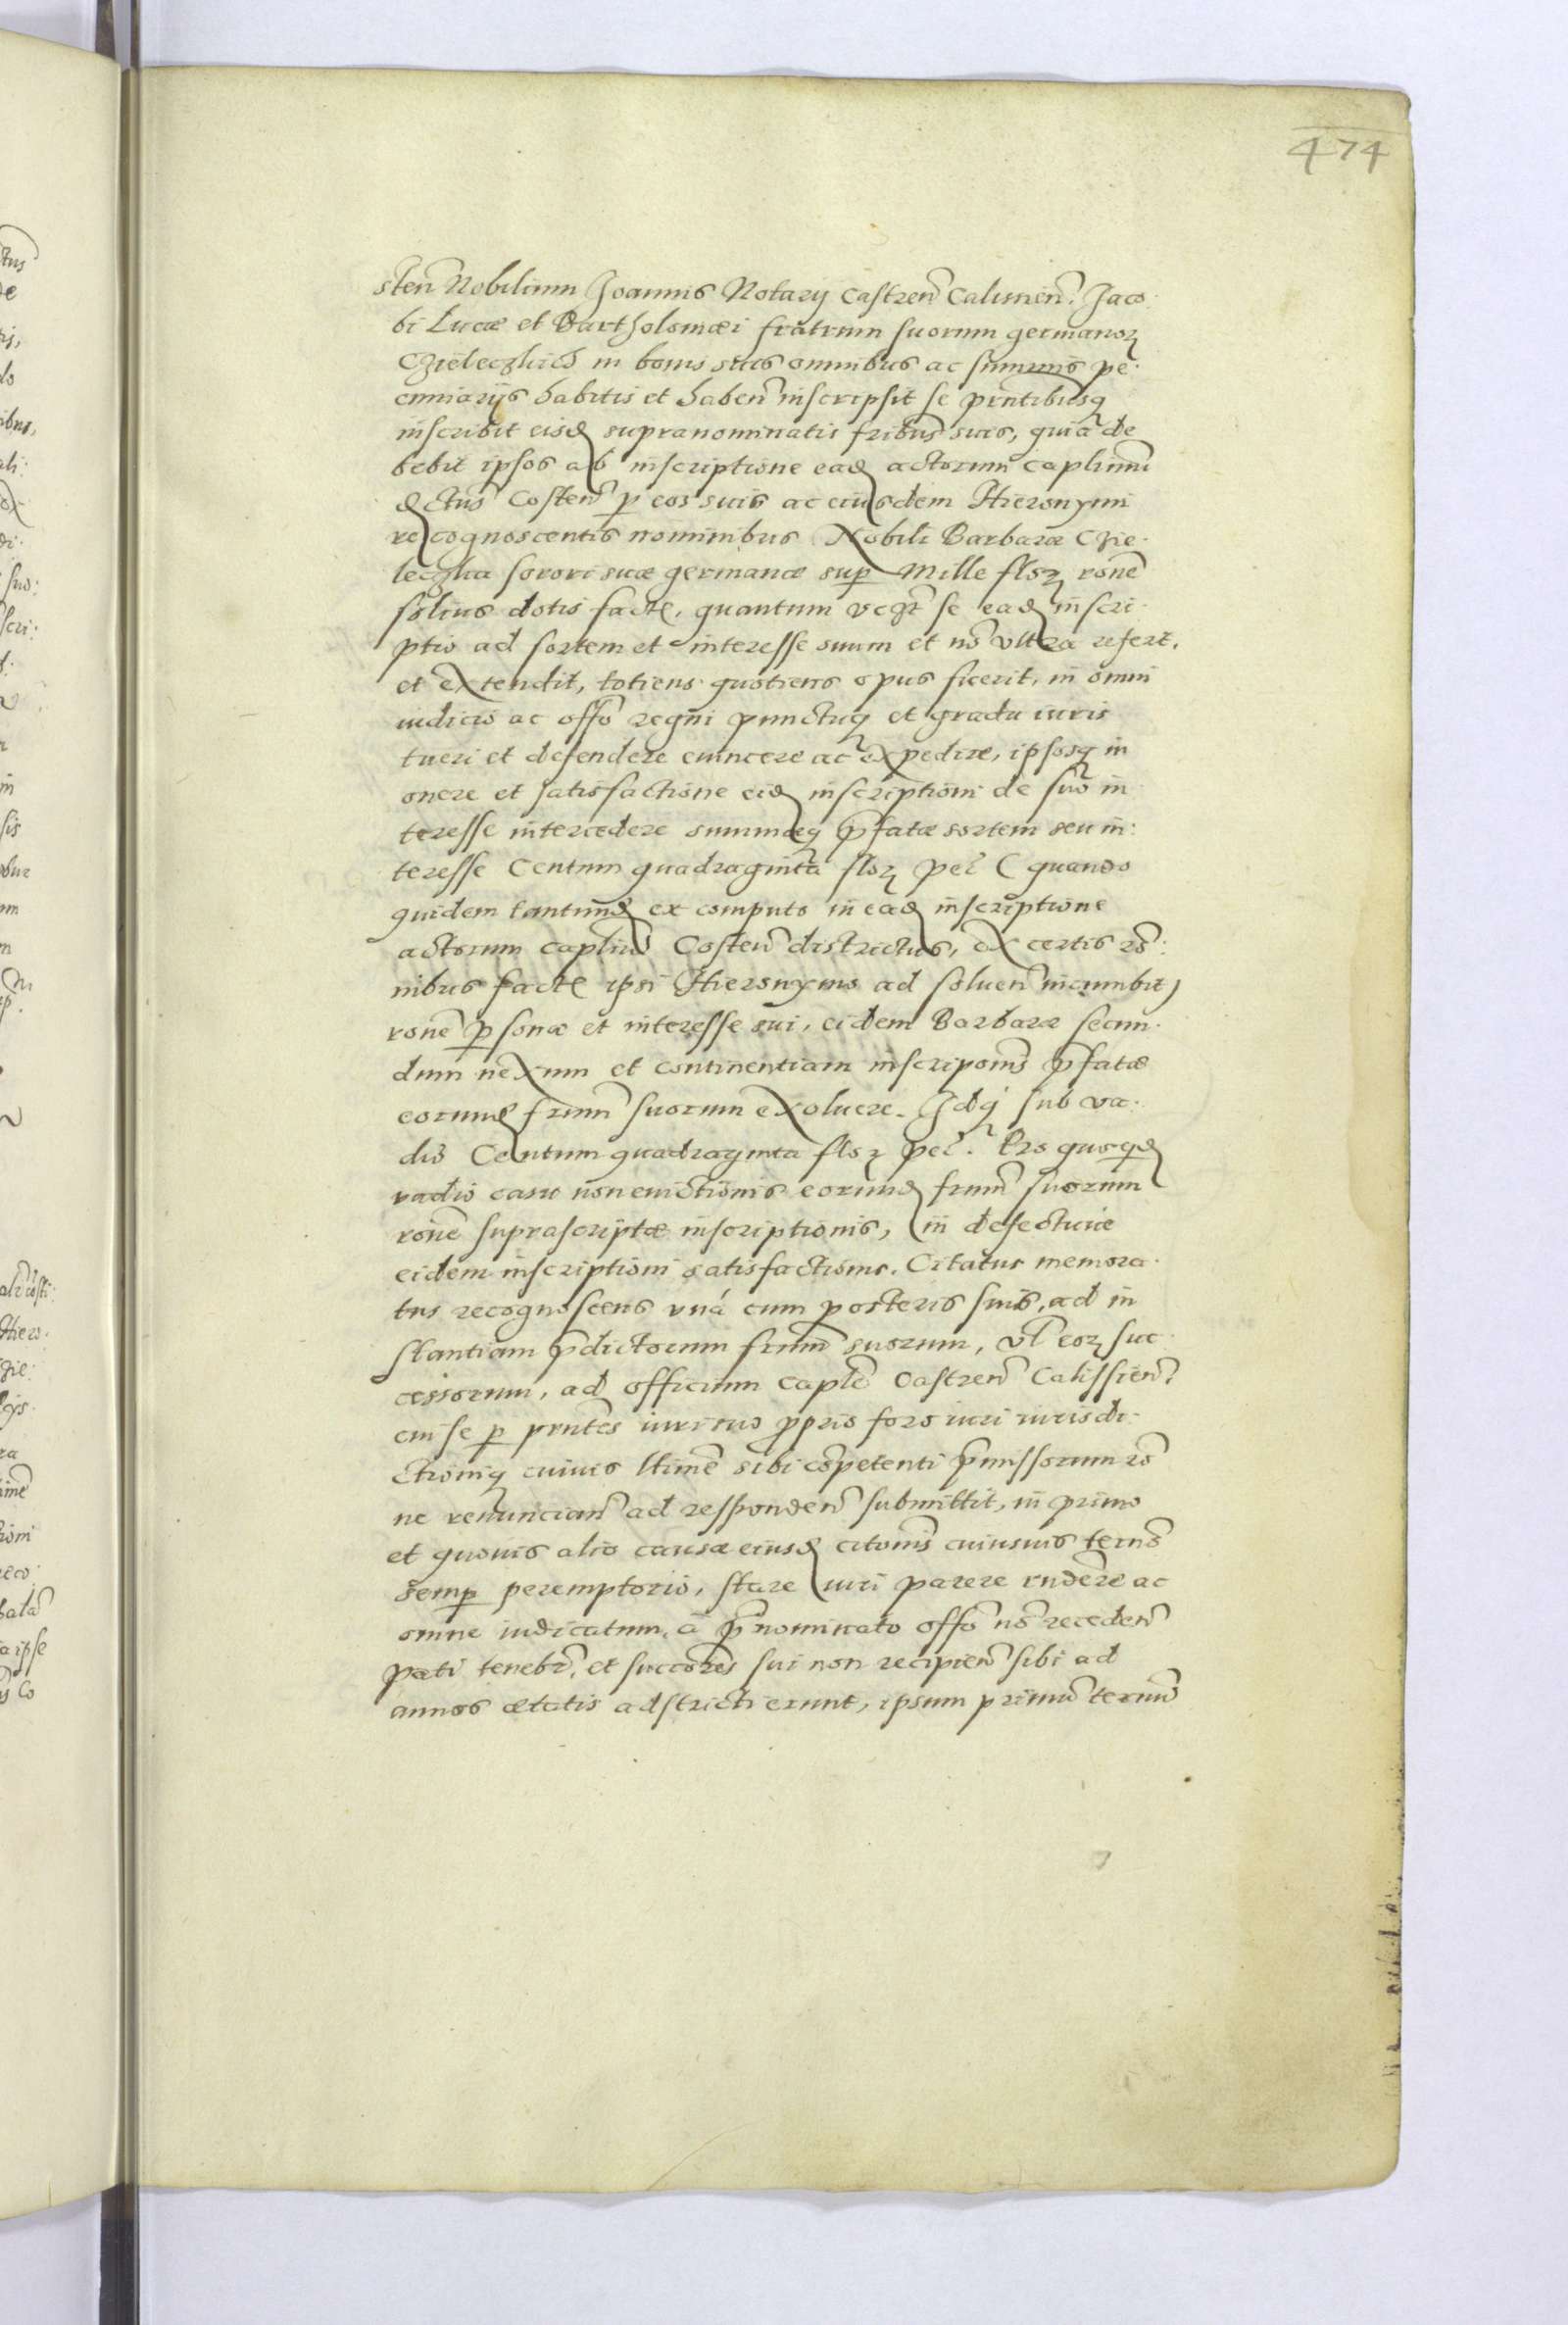 474
sten Nobilium Joannis Notarij Castren Calissien. Jaco
bi Lucæ et Bartholomæi fratrum suorum germanoꝝ
Czieleczkich in bonis suis omnibus ac summis pe
cuniarijs habitis et haben inscripsit se pñtibusq
inscribit eisd supranominatis fribus suis, quia de
bebit ipsos ab inscriptione ead actorum caplium
dctus Costen p eos suis ac eiusdem Hieronymi
recognoscentis nominibus Nobili Barbaræ Czie
leczka sorori suæ germanæ sup Mille floꝝ rone
solius dotis factę, quantum vcqz se ead inscri
ptio ad sortem et interesse suum et no vltra refert,
et extendit, totiens quotiens opus fuerit, in omni
iudicio ac offo regni punctuq et gradu iuris
tueri et defendere euincere ac expedire, ipsosq in
onere et satisfactione eid inscriptioni de suo in
teresse intercedere summæq pfatæ sortem seu in:
teresse Centum quadraginta floꝝ pel (quando
quidem tantund ex computo in ead inscriptione
actorum caplium Costen districtus, ex certis ro:
nibus factę ipsi Hieronymo ad soluen incumbit)
rone psonæ et interesse sui, eidem Barbaræ secun
dum nexum et continentiam inscriponis pfatæ
eorund frum suorum exoluere. Idq sub va
dio Centum quadraginta floꝝ pel. Pro quoqd
vadio casu non euictionis eorund frum suorum
rone suprascriptæ inscriptionis, in defectuue
eidem inscriptioni satisfactionis. Citatus memora
tus recognoscens vná cum posteris suis, ad in
stantiam pdictorum frum suorum, vl eoꝝ suc
cessorum, ad officium caple Castren Calissien
cui se p pntes iuri suo pprio foro iuri iurisdi
ctioniq cuiuis ltime sibi competenti pmissorum ro
ne renuncian ad responden submittit, in primo
et quouis alio causæ eiusd citonis cuiusuis termo
semp peremptorio, stare iuri parere rndere ac
omne iudicatum, à pnominato offo no receden
pati tenebr, et succores sui non recipien sibi ad
annos ætatis adstricti erunt, ipsum primum termu